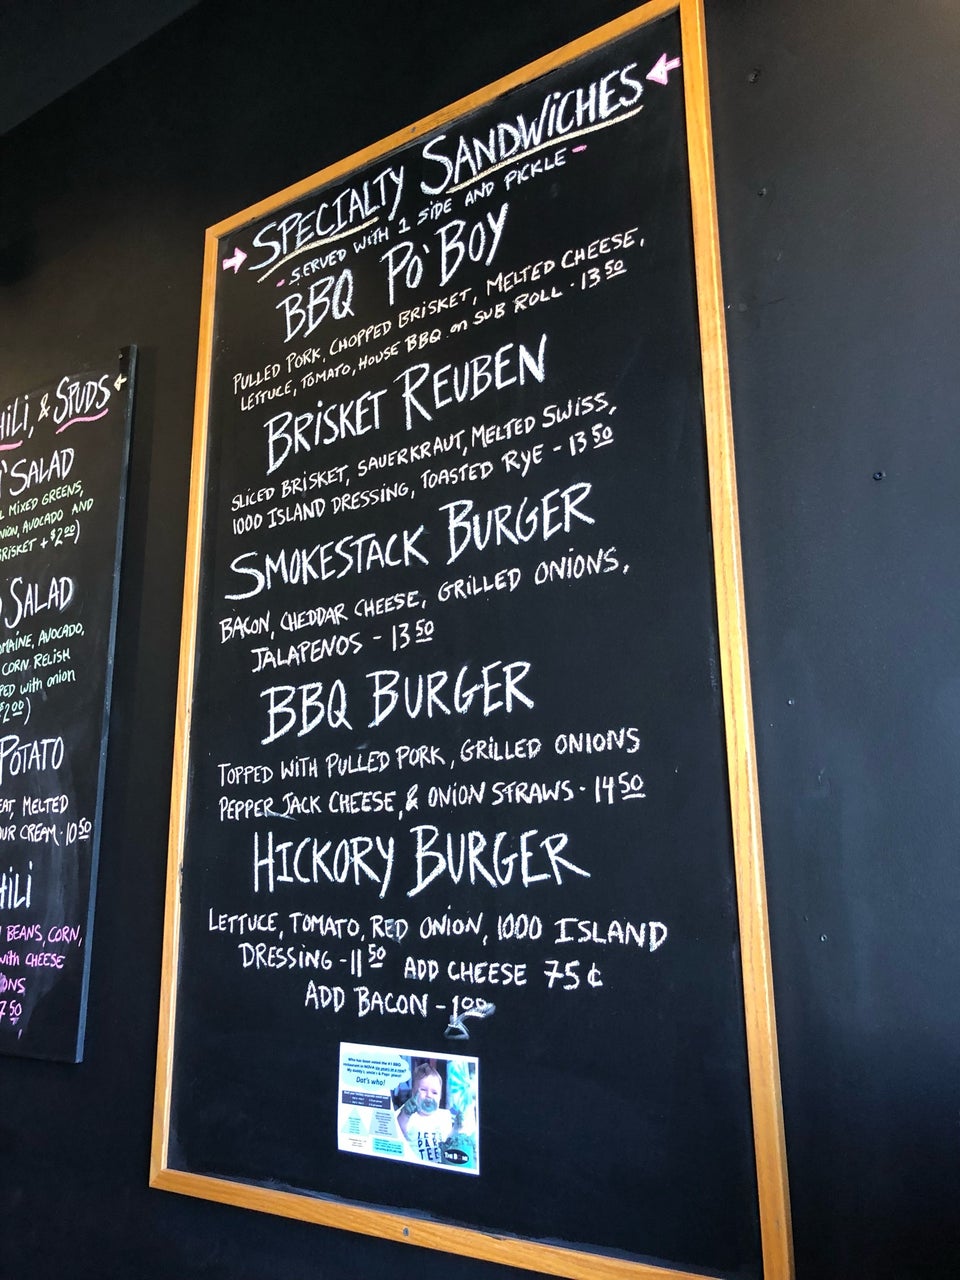 HILI, & SPUDS
SALAD
MIXED GREENS,
AVOCADO AND
BRISKET + $2.00)
SALAD
AVOCADO,
CORN RELISH
with onion
$2.00)
POTATO
MELTED
CREAM - 10.50
HILI
BEANS, CORN,
with CHEESE
7.50
SPECIALTY SANDWICHES
- SERVED WITH 1 SIDE AND PICKLE -
BBQ PO'BOY
PULLED PORK, CHOPPED BRISKET, MELTED CHEESE,
LETTUCE, TOMATO, HOUSE BBQ on SUB ROLL - 13.50
BRISKET REUBEN
SLICED BRISKET, SAUERKRAUT, MELTED SWISS,
1000 ISLAND DRESSING, TOASTED RYE - 13.50
SMOKESTACK BURGER
BACON, CHEDDAR CHEESE, GRILLED ONIONS,
JALAPENOS - 13.50
BBQ BURGER
TOPPED WITH PULLED PORK, GRILLED ONIONS
PEPPER JACK CHEESE, & ONION STRAWS - 14.50
HICKORY BURGER
LETTUCE, TOMATO, RED ONION, 1000 ISLAND
DRESSING - 11.50 ADD CHEESE 75¢
ADD BACON - 1.00
Who has been voted the #1 BBQ
restaurant in NOVA six years in a row?
Dat's who!
THE BONE